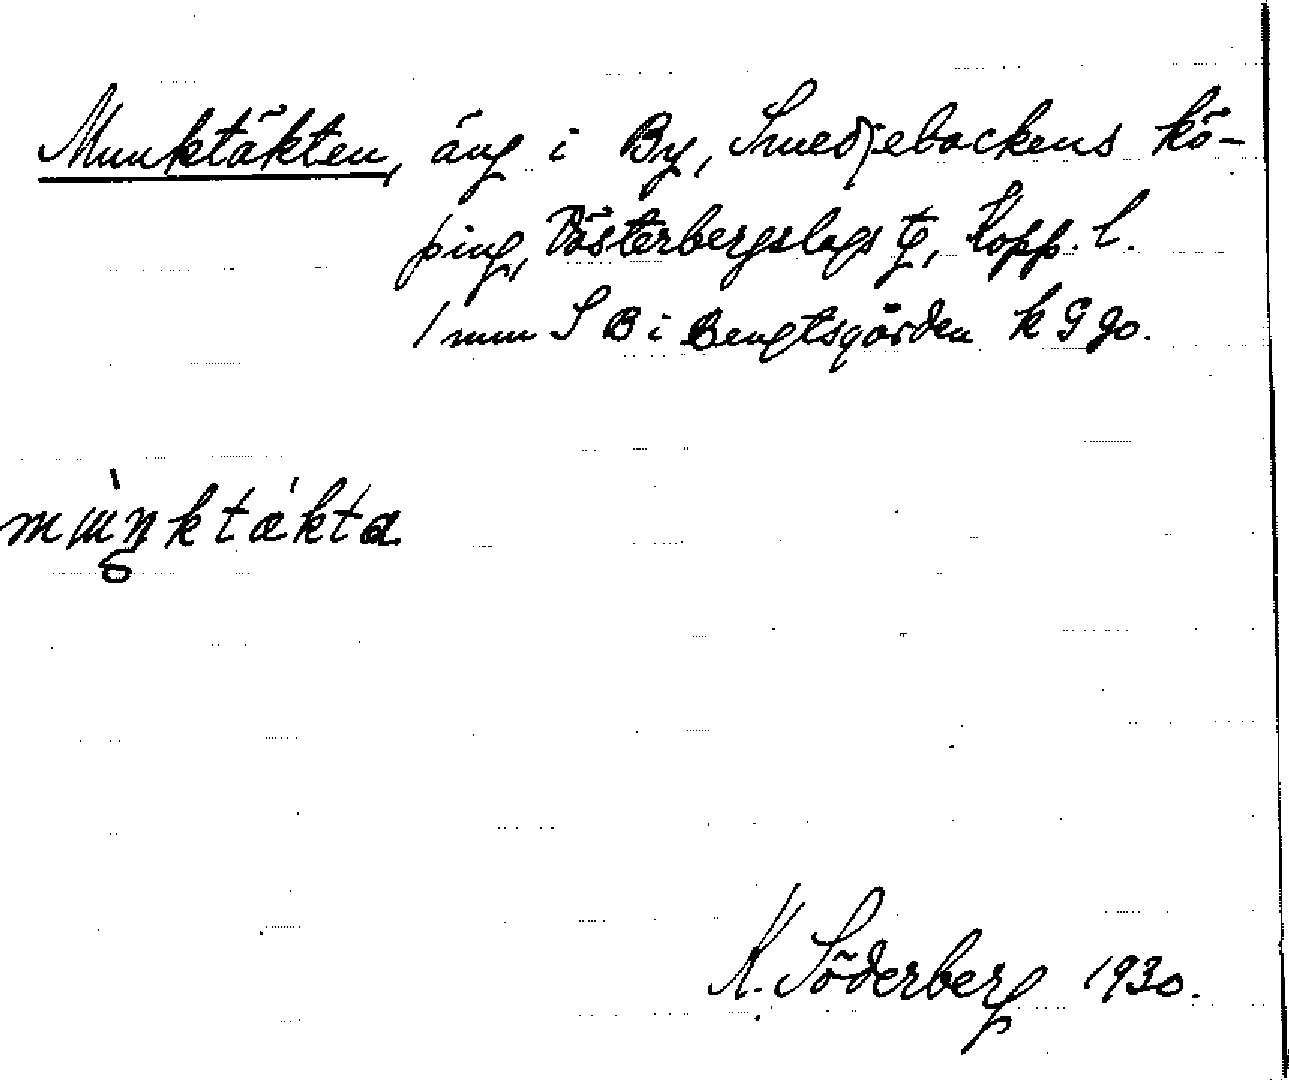 Munktäkten, äng i By, Smedjebackens kö-
ping, Västerbergslags tg, Kopp. l.
1 mm S B i Bengtsgården k S go.
mùŋktákta
K. Söderberg 1930.